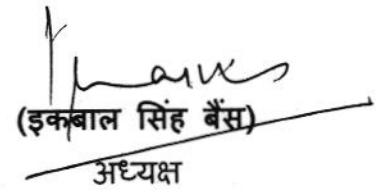 (इकबाल सिंह बैंस)
अध्यक्ष